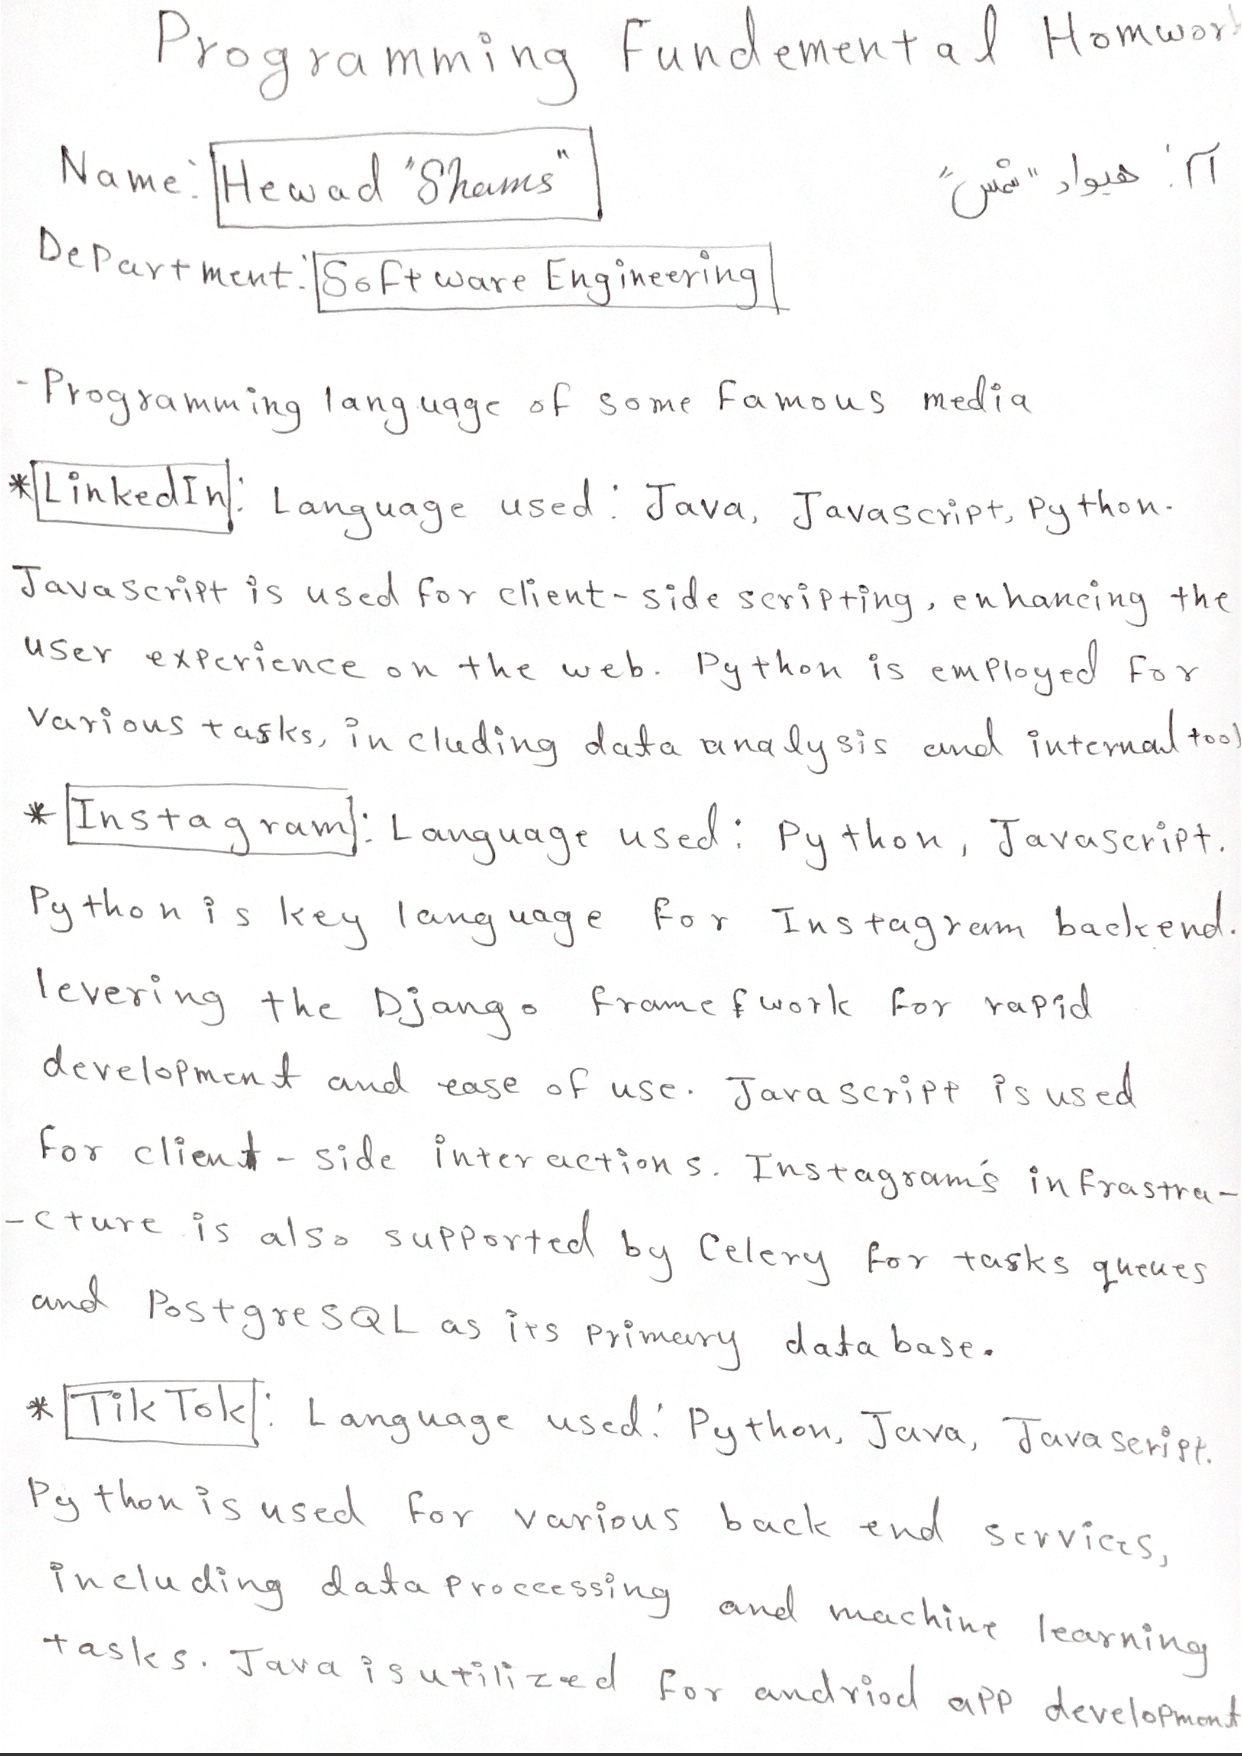 Programming Fundemental Homwork
Name: Hewad "Shams"
۲۲: هیواد "شمس"
Department: Software Engineering
- Programming language of some famous media
* LinkedIn: Language used: Java, Javascript, Python.
Javascript is used for client-side scripting, enhancing the
user experience on the web. Python is employed for
various tasks, including data analysis and internal tool
* Instagram: Language used: Python, Javascript.
Python is key language for Instagram backend.
levering the Django framefwork for rapid
development and ease of use. Javascript is used
for client-side interactions. Instagram's infrastra-
-cture is also supported by Celery for tasks queues
and PostgreSQL as its primary database.
* TikTok: Language used: Python, Java, Javascript.
Python is used for various back end services,
including data proccessing and machine learning
tasks. Java is utilized for andriod app development